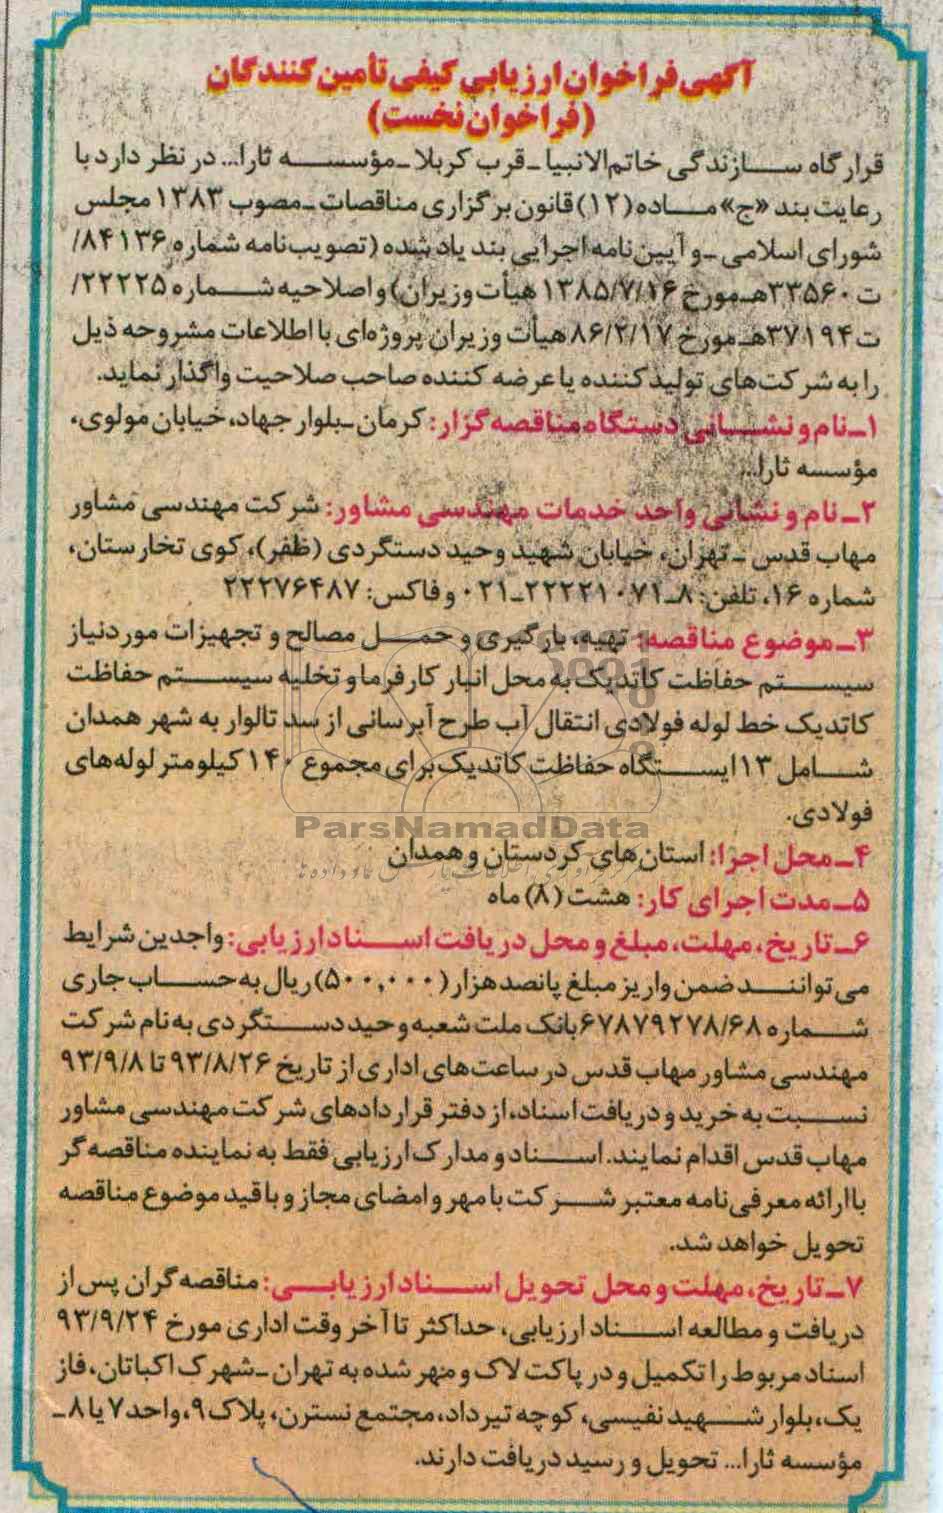 آگهی فراخوان ارزیابی کیفی تأمین کنندگان
(فراخوان نخست)
قرارگاه سازندگی خاتم‌الانبیا ـ قرب کربلا ـ مؤسسه ثارا... در نظر دارد با
رعایت بند «ج» ماده (۱۲) قانون برگزاری مناقصات ـ مصوب ۱۳۸۳ مجلس
شورای اسلامی ـ و آیین‌نامه اجرایی بند یاد شده (تصویب‌نامه شماره ۸۴۱۳۶/
ت۳۳۵۶۰هـ مورخ ۱۳۸۵/۷/۱۶ هیأت وزیران) و اصلاحیه شماره ۲۲۲۲۵/
ت۳۷۱۹۴هـ مورخ ۸۶/۲/۱۷ هیأت وزیران پروژه‌ای با اطلاعات مشروحه ذیل
را به شرکت‌های تولید کننده یا عرضه کننده صاحب صلاحیت واگذار نماید.
۱ـ نام و نشانی دستگاه مناقصه گزار: کرمان ـ بلوار جهاد، خیابان مولوی،
مؤسسه ثارا...
۲ـ نام و نشانی واحد خدمات مهندسی مشاور: شرکت مهندسی مشاور
مهاب قدس ـ تهران، خیابان شهید وحید دستگردی (ظفر)، کوی تخارستان،
شماره ۱۶، تلفن: ۸ـ۲۲۲۲۱۰۷۱ـ۰۲۱ و فاکس: ۲۲۲۷۶۴۸۷
۳ـ موضوع مناقصه: تهیه، بارگیری و حمل مصالح و تجهیزات موردنیاز
سیستم حفاظت کاتدیک به محل انبار کارفرما و تخلیه سیستم حفاظت
کاتدیک خط لوله فولادی انتقال آب طرح آبرسانی از سد تالوار به شهر همدان
شامل ۱۳ ایستگاه حفاظت کاتدیک برای مجموع ۱۴۰ کیلومتر لوله‌های
فولادی.
ParsNamadData
۴ـ محل اجرا: استان‌های کردستان و همدان
۵ـ مدت اجرای کار: هشت (۸) ماه
۶ـ تاریخ، مهلت، مبلغ و محل دریافت اسناد ارزیابی: واجدین شرایط
می‌توانند ضمن واریز مبلغ پانصد هزار (۵۰۰,۰۰۰) ریال به حساب جاری
شماره ۶۷۸۷۹۲۷۸/۶۸ بانک ملت شعبه وحید دستگردی به نام شرکت
مهندسی مشاور مهاب قدس در ساعت‌های اداری از تاریخ ۹۳/۸/۲۶ تا ۹۳/۹/۸
نسبت به خرید و دریافت اسناد، از دفتر قراردادهای شرکت مهندسی مشاور
مهاب قدس اقدام نمایند. اسناد و مدارک ارزیابی فقط به نماینده مناقصه گر
با ارائه معرفی‌نامه معتبر شرکت با مهر و امضای مجاز و با قید موضوع مناقصه
تحویل خواهد شد.
۷ـ تاریخ، مهلت و محل تحویل اسناد ارزیابی: مناقصه گران پس از
دریافت و مطالعه اسناد ارزیابی، حداکثر تا آخر وقت اداری مورخ ۹۳/۹/۲۴
اسناد مربوط را تکمیل و در پاکت لاک و مهر شده به تهران ـ شهرک اکباتان، فاز
یک، بلوار شهید نفیسی، کوچه تیرداد، مجتمع نسترن، پلاک ۹، واحد ۷ یا ۸ ـ
مؤسسه ثارا... تحویل و رسید دریافت دارند.